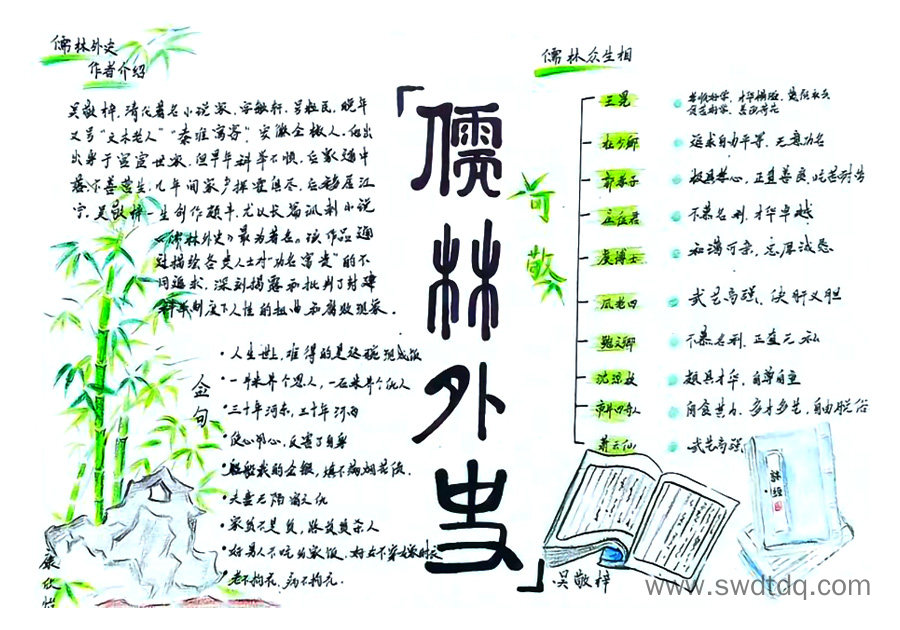 儒林外史
作者介绍
吴敬梓,清代著名小说家,字敏轩,号粒民,晚年
又号"文木老人""秦淮寓客",安徽全椒人。他出
出身于官宦世家,但早年科举不顺,后家道中
落不善营生,几年间家产挥霍俱尽,后移居江
宁。吴敬梓一生创作颇丰,尤以长篇讽刺小说
《儒林外史》最为著名。该作品通
过描绘各类人士对"功名富贵"的不
同追求,深刻揭露和批判了封建
科举制度下人性的扭曲和腐败现象。
金句
·人生世上,难得的是这碗现成饭
·一斗米养个恩人,一石米养个仇人
·三十年河东,三十年河西
·大丈夫
·老不拘礼,病不拘礼。
「儒林外史」
儒林众生相
可敬
王冕
杜少卿 追求自由平等,无意功名
郭孝子 极具孝心,正直善良,吃苦耐劳
庄征君 不慕名利,才华卓越
虞博士 和蔼可亲,忠厚诚恳
凤老四 武艺高强,侠肝义胆
鲍文卿 不慕名利,正直无私
沈琼枝 极具才华,自尊自重
市井四奇人 自食其力,多才多艺,自由脱俗
萧云仙 武艺高强
吴敬梓
康欣怡
www.swdtdq.com